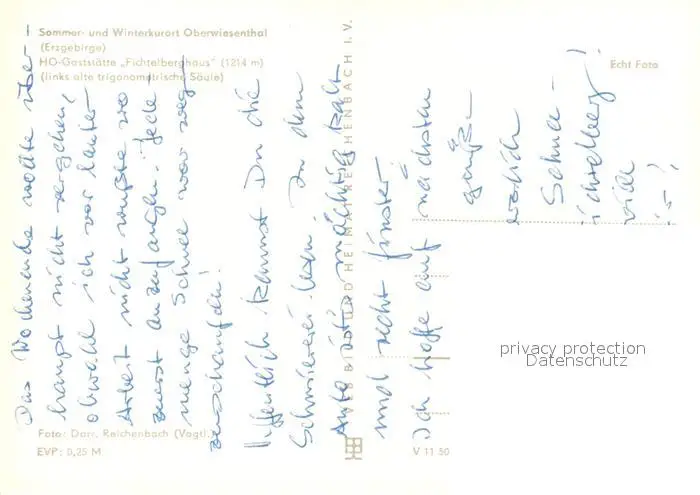 Sommer- und Winterkurort Oberwiesenthal
(Erzgebirge)
HO-Gaststätte „Fichtelberghaus" (1214 m)
(links alte trigonometrische Säule)
Echt Foto
Das Wochenende wollte über-
haupt nicht vergehen,
obwohl ich vor lauter
Arbeit nicht wußte wo
zuerst anzufangen. Jede
menge Schnee war weg
zuschaufeln!
Hoffentlich kannst Du die
Schmiererei lesen. In dem
Auto ist's mächtig kalt
und recht finster.
Ich hoffe auf nächsten
VEB BILD UND HEIMAT REICHENBACH I. V.
Foto: Darr, Reichenbach (Vogtl.)
EVP: 0,25 M
V 11 50
privacy protection
Datenschutz